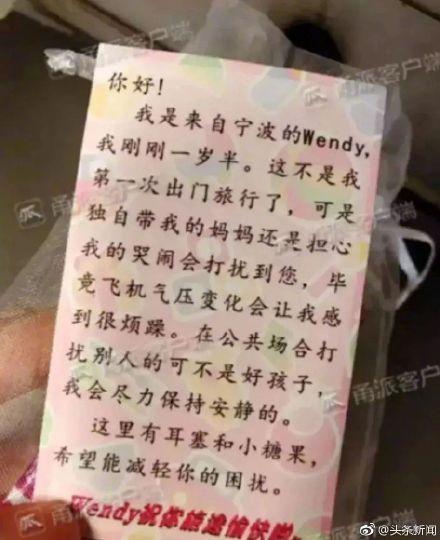 你好!
我是来自宁波的Wendy,
我刚刚一岁半。这不是我
第一次出门旅行了，可是
独自带我的妈妈还是担心
我的哭闹会打扰到您，毕
竟飞机气压变化会让我感
到很烦躁。在公共场合打
扰别人的可不是好孩子，
我会尽力保持安静的。
这里有耳塞和小糖果，
希望能减轻你的困扰。
Wendy祝你旅途愉快
甬派客户端
甬派客户端
甬派客户端
甬派客户端
@头条新闻